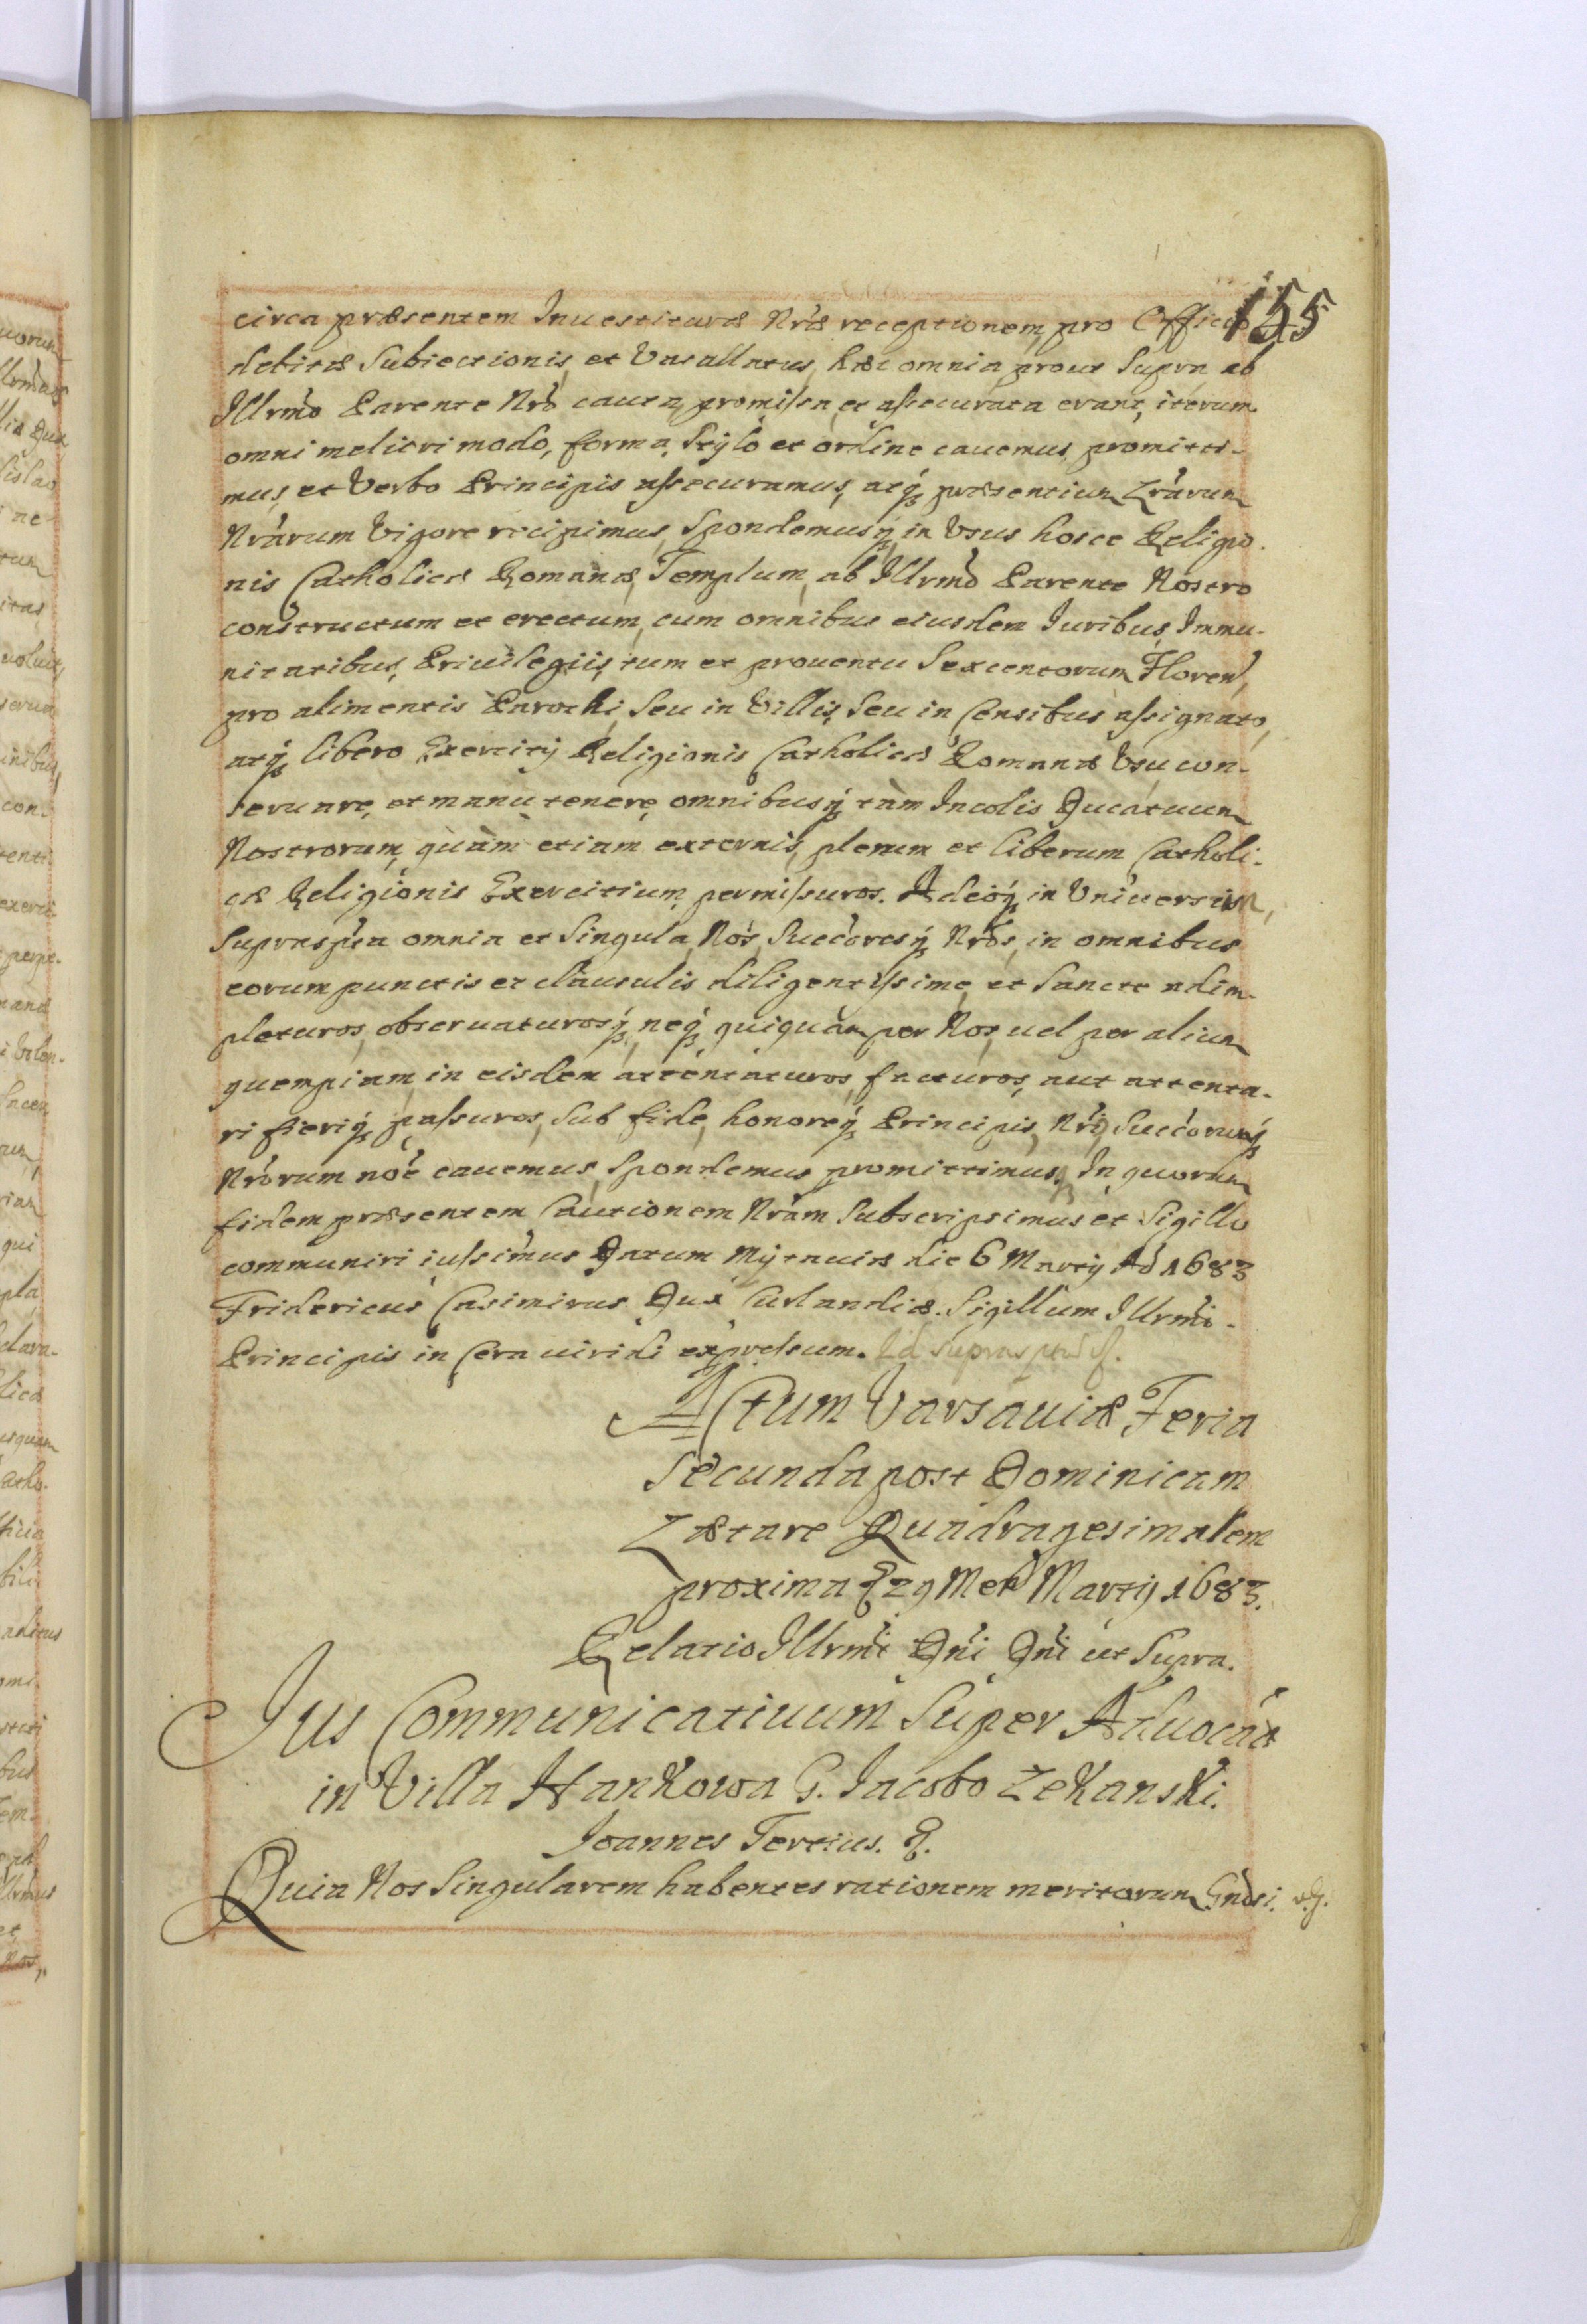 155
circa præsentem Inuestituræ Nræ receptionem, pro Officio
debitæ Subiectionis, et Vasallatus, hæc omnia prout Supra ab
Illrmo Parente Nro cauta, promissa, et assecurata erant, iterum
omni meliori modo, forma, Stylo et ordine cauemus, promitti-
mus, et Verbo Principis assecuramus, atq. præsentium Lrarum
Nrarum Vigore recipimus, Spondemusq. in Vsus hosce Religio-
nis Catholicæ Romanæ, Templum, ab Illrmo Parente Nostro
constructum et erectum, cum omnibus eiusdem Iuribus, Immu-
nitatibus, Priuilegiis, tum et prouentu Sexcentorum Floren,
pro alimentis Parochi, Seu in Villis, Seu in Censibus assignato,
atq. libero Exercitij Religionis Catholicæ Romanæ Vsu con-
seruare, et manutenere, omnibusq. tàm Incolis Ducatuum
Nostrorum, quàm etiam externis, plenum et liberum Catholi-
cæ Religionis Exercitium, permissuros. Adeoq. in Vniuersum,
Supraspta omnia et Singula, Nos, Succoresq. Nros, in omnibus
eorum punctis et clausulis diligentissime, et Sancte adim-
pleturos, obseruaturosq., neq. quiquàm per Nos, uel per alium
quempiam, in eisdem attentaturos, facturos, aut attenta-
ri fieriq. passuros, Sub fide, honoreq. Principis, Nri, Succorumq.
Nrorum noe cauemus, Spondemus, promittimus. In quorum
fidem præsentem Cautionem Nram Subscripsimus et Sigillo
communiri iussimus Datum Mytauiæ die 6 Martij Ao 1683
Fridericus Casimirus Dux Curlandiæ. Sigillum Illrmi
Principis in Cera uiridi expressum.
Actum Varsauiæ Feria
Secunda post Dominicam
Lætare Quadragesimalem
proxima 29 Men Martij 1683.
Relatio Illrmi Dni Dni ut Supra.
Jus Communicatiuum Super Aduocatia
in Villa Hankowa G. Iacobo Zekanski.
Joannes Tertius. &.
Quia Nos Singularem habentes rationem meritorum Gnosi.